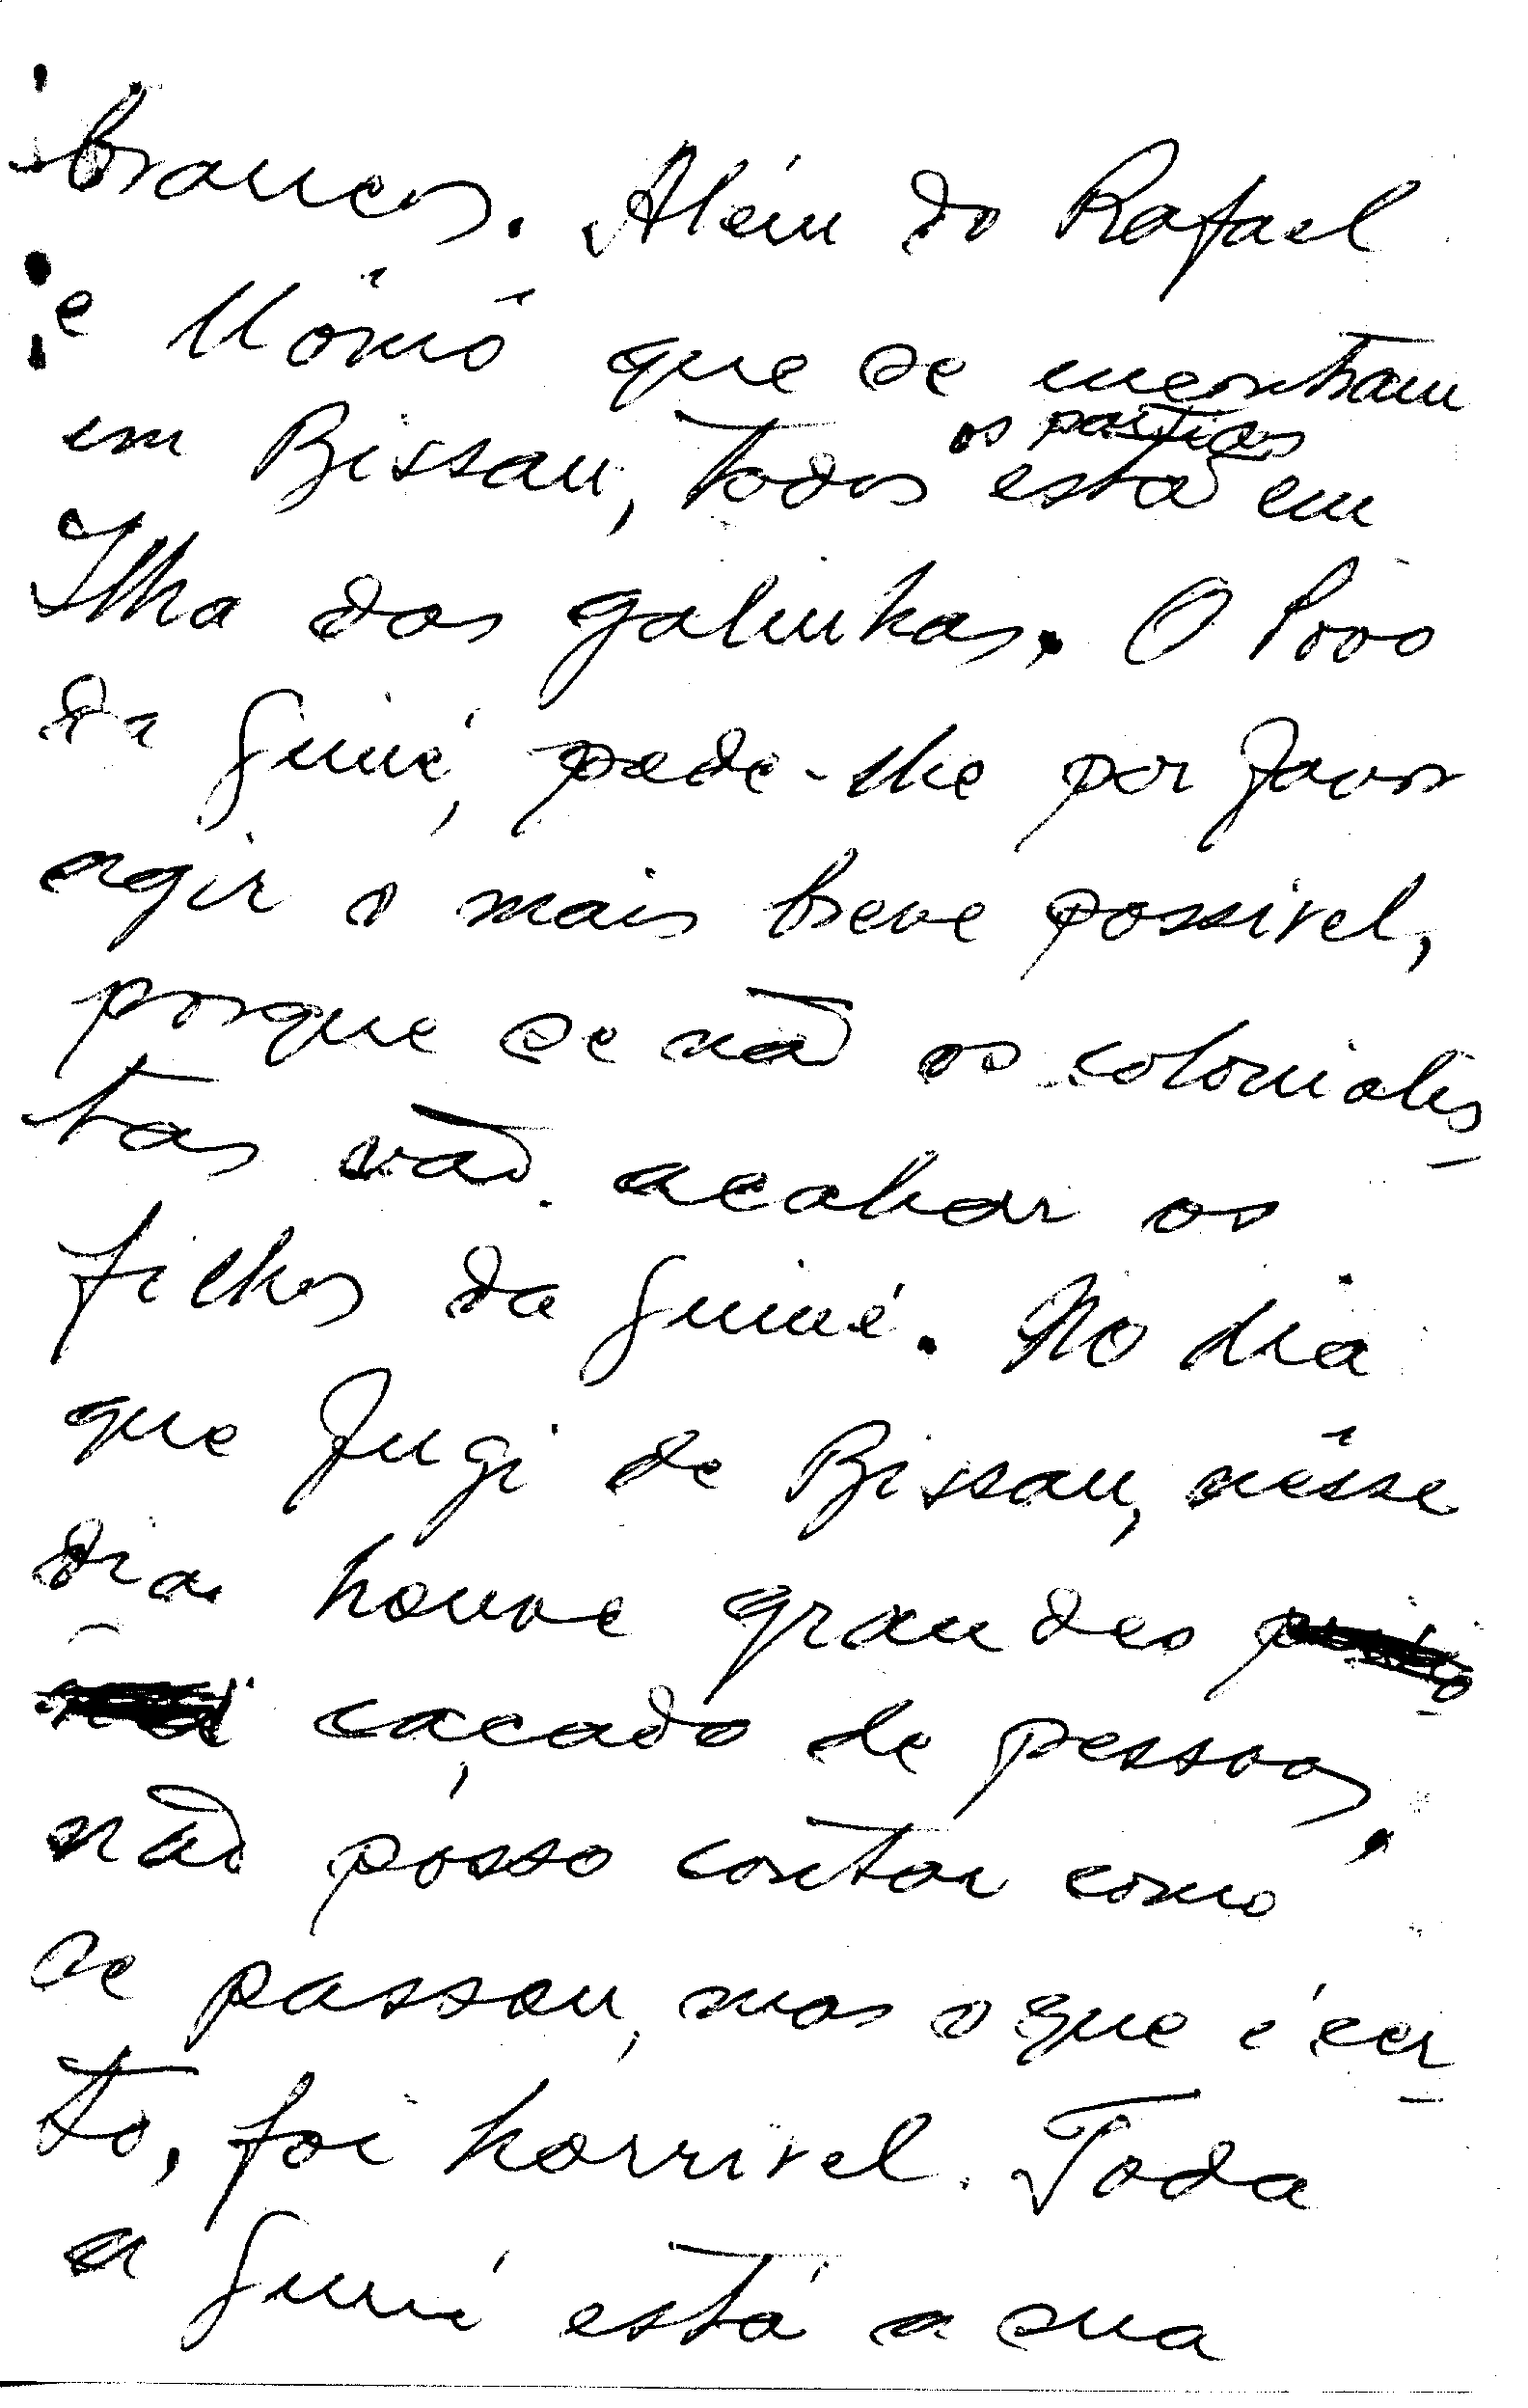 brancos. Além do Rafael
e Mômô que se encontram
em Bissau, todos os
está em
Ilha das galinhas. O Povo
da Guiné, pede-lhe por favor
agir o mais breve possivel,
porque se não os colonialis
tas vão acabar os
filhos da Guiné. No dia
que fugi de Bissau, nêsse
dia houve grandes
caçado de pessoas,
não posso contar como
se passou, mas o que é cer
to, foi horrivel. Toda
a Guiné está a sua